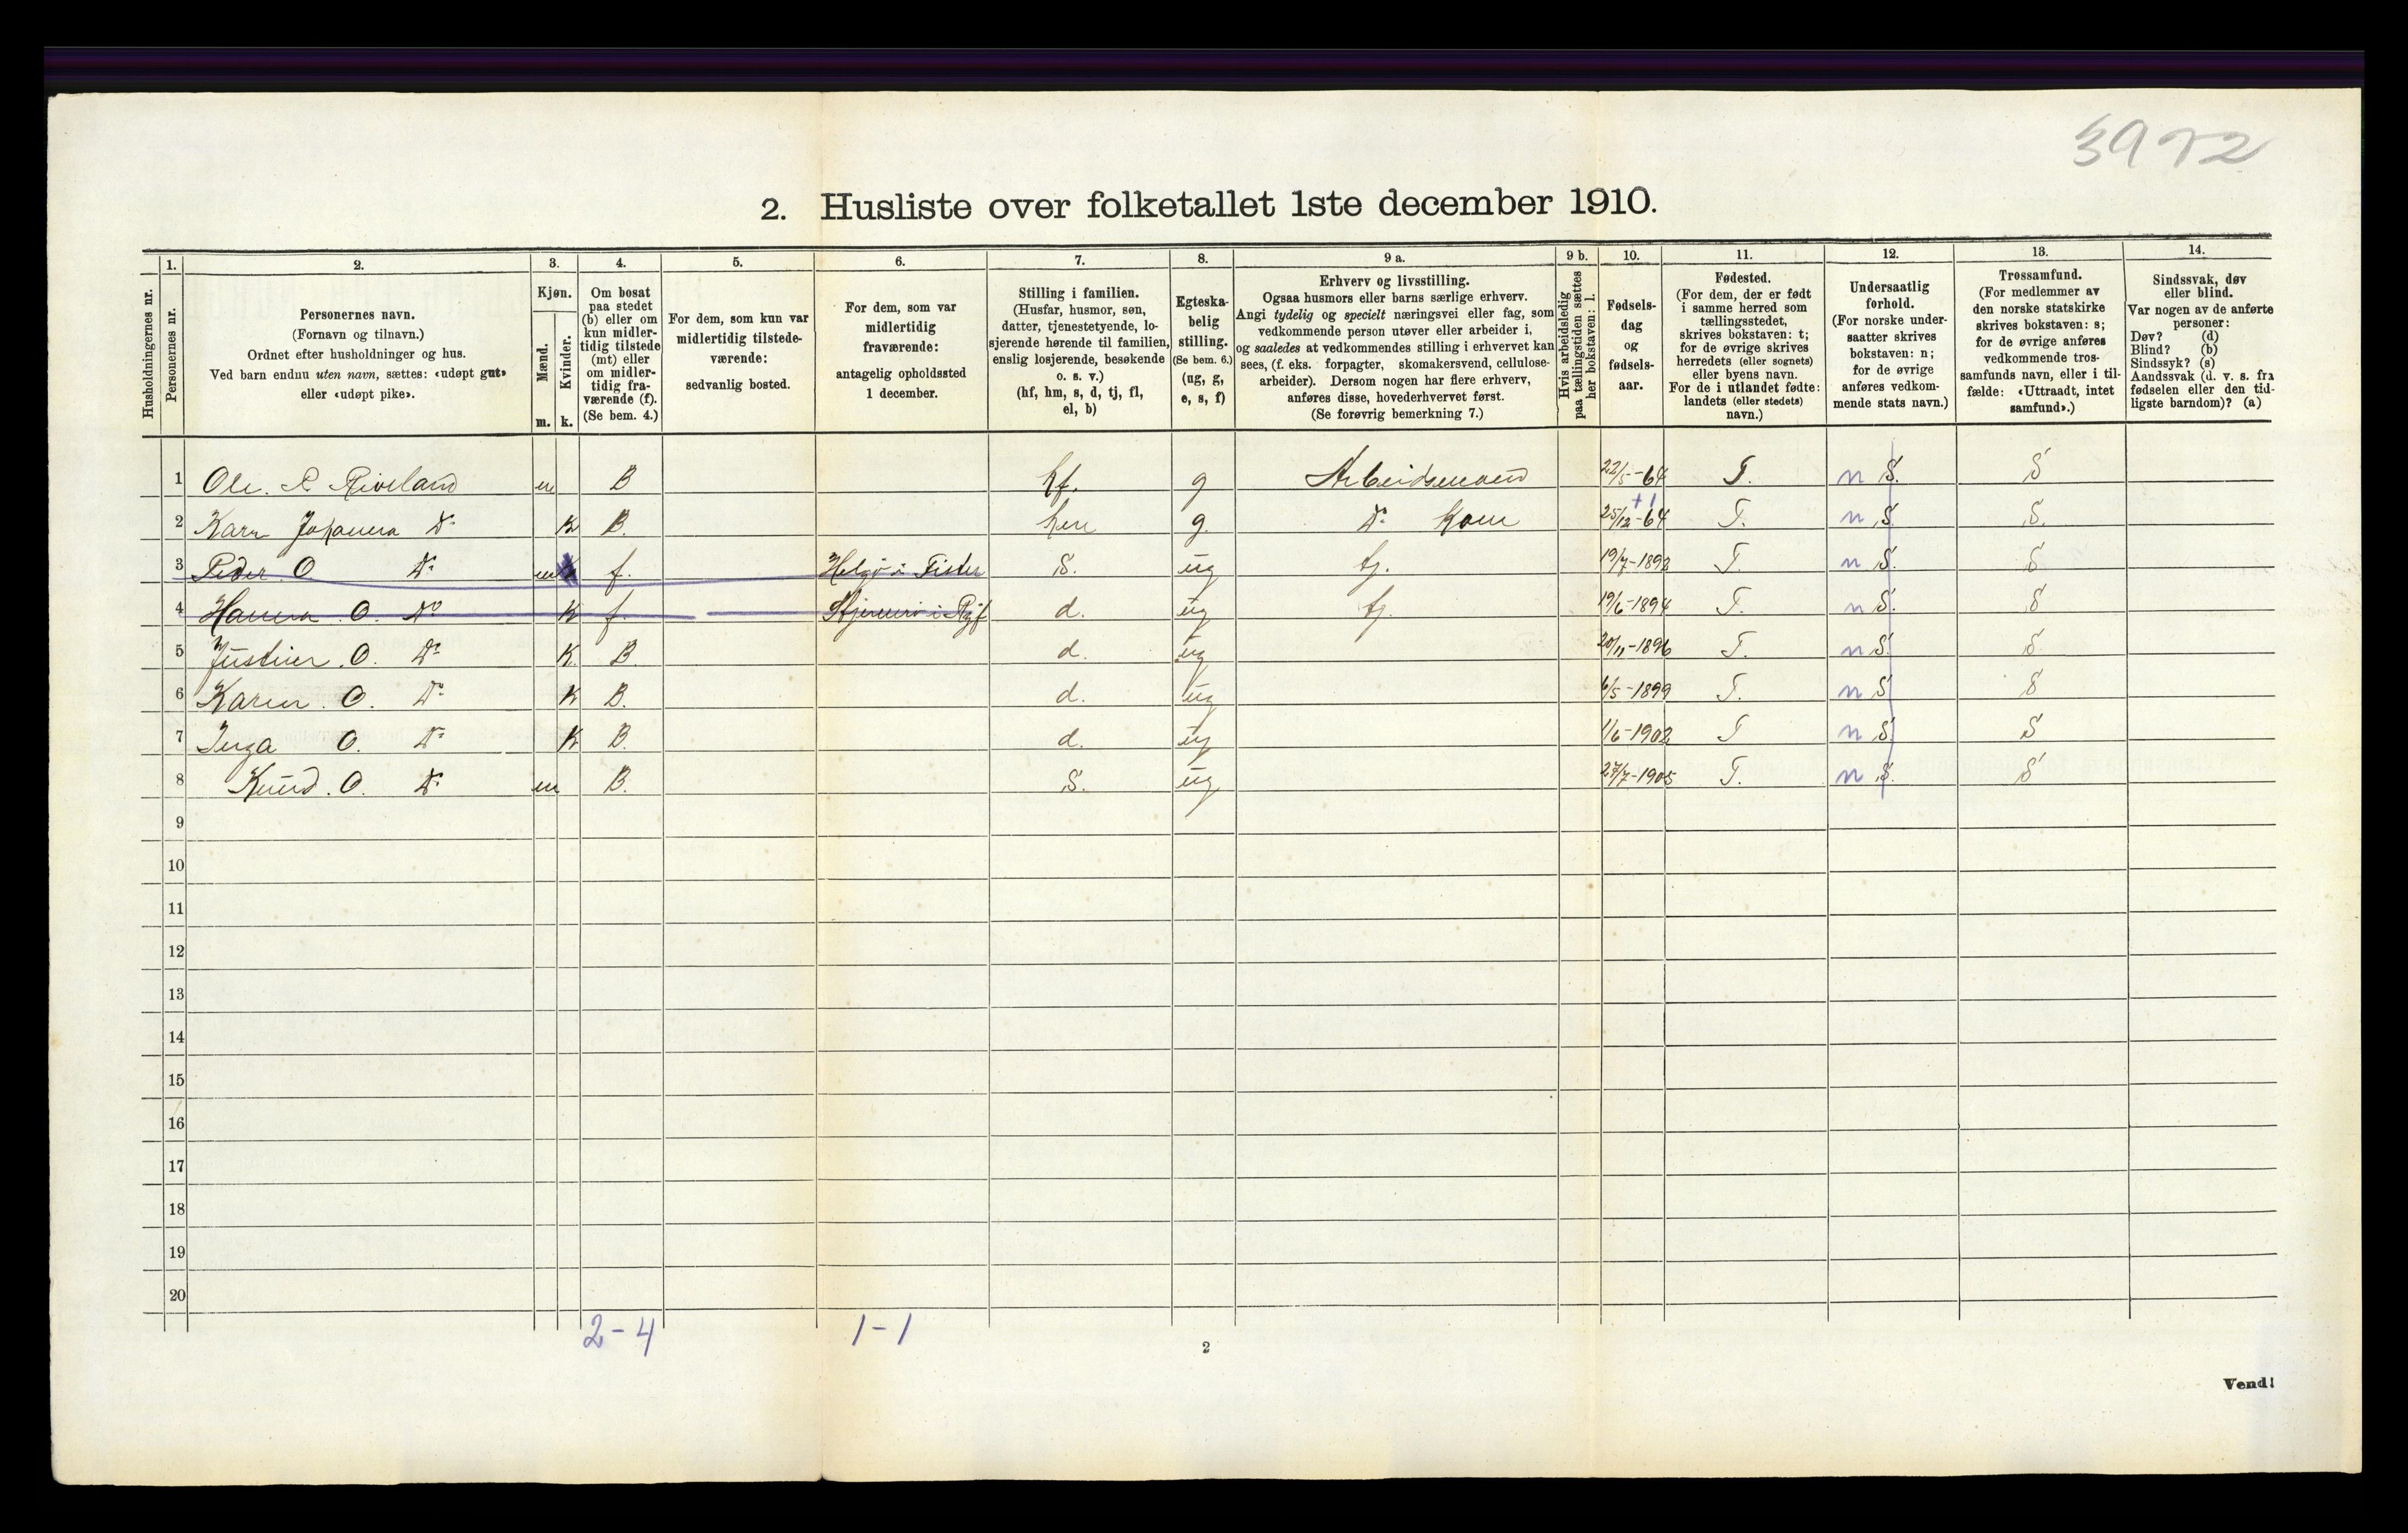 3972
2. Husliste over folketallet 1ste december 1910.
Husholdningernes nr.
1.
Personernes nr.
2.
Personernes navn.
(Fornavn og tilnavn.)
Ordnet efter husholdninger og hus.
Ved barn endnu uten navn, sættes: «udøpt gut»
eller «udøpt pike».
3.
Kjøn.
Mænd.
Kvinder.
m. k.
4.
Om bosat
paa stedet
(b) eller om
kun midler-
tidig tilstede
(mt) eller
om midler-
tidig fra-
værende (f).
(Se bem. 4.)
5.
For dem, som kun var
midlertidig tilstede-
værende:
sedvanlig bosted.
6.
For dem, som var
midlertidig
fraværende:
antagelig opholdssted
1 december.
7.
Stilling i familien.
(Husfar, husmor, søn,
datter, tjenestetyende, lo-
sjerende hørende til familien,
enslig losjerende, besøkende
o. s. v.)
(hf, hm, s, d, tj, fl,
el, b)
8.
Egteska-
belig
stilling.
(Se bem. 6.)
(ug, g,
e, s, f)
9 a.
Erhverv og livsstilling.
Ogsaa husmors eller barns særlige erhverv.
Angi tydelig og specielt næringsvei eller fag, som
vedkommende person utøver eller arbeider i,
og saaledes at vedkommendes stilling i erhvervet kan
sees, (f. eks. forpagter, skomakersvend, cellulose-
arbeider). Dersom nogen har flere erhverv,
anføres disse, hovederhvervet først.
(Se forøvrig bemerkning 7.)
9 b.
Hvis arbeidsledig
paa tællingstiden sættes
her bokstaven: l.
10.
Fødsels-
dag
og
fødsels-
aar.
11.
Fødested.
(For dem, der er født
i samme herred som
tællingsstedet,
skrives bokstaven: t;
for de øvrige skrives
herredets (eller sognets)
eller byens navn.
For de i utlandet fødte:
landets (eller stedets)
navn.)
12.
Undersaatlig
forhold.
(For norske under-
saatter skrives
bokstaven: n;
for de øvrige
anføres vedkom-
mende stats navn.)
13.
Trossamfund.
(For medlemmer av
den norske statskirke
skrives bokstaven: s;
for de øvrige anføres
vedkommende tros-
samfunds navn, eller i til-
fælde: «Uttraadt, intet
samfund».)
14.
Sindssvak, døv
eller blind.
Var nogen av de anførte
personer:
Døv? (d)
Blind? (b)
Sindssyk? (s)
Aandssvak (d. v. s. fra
fødselen eller den tid-
ligste barndom)? (a)
1 Ole. P Riveland m B hf. g Arbeidsmand 22/5-64 T. n S. S
2 Karn Johanna Do k B. hm g. Do Kone 25/12-64 +1 T. n S S.
3 Peder O Do m f. Helgø i Fister S. ug tj. 19/7-1892 T. n S. S
4 Hanna O. Do k f. i Ryf d. ug tj. 19/6-1894 T. n S. S
5 Justine. O. Do K. B. d. ug 20/11-1896 T. n S. S.
6 Karen. O. Do k B. d. ug 6/5-1899 T. n S S
7 Inga O. Do K B. d. ug 1/6-1902 T n S S
8 Knud. O. Do m B. S. ug 27/7-1905 T. n S. S
9
10
11
12
13
14
15
16
17
18
19
20
2-4 1-1
2
Vend!